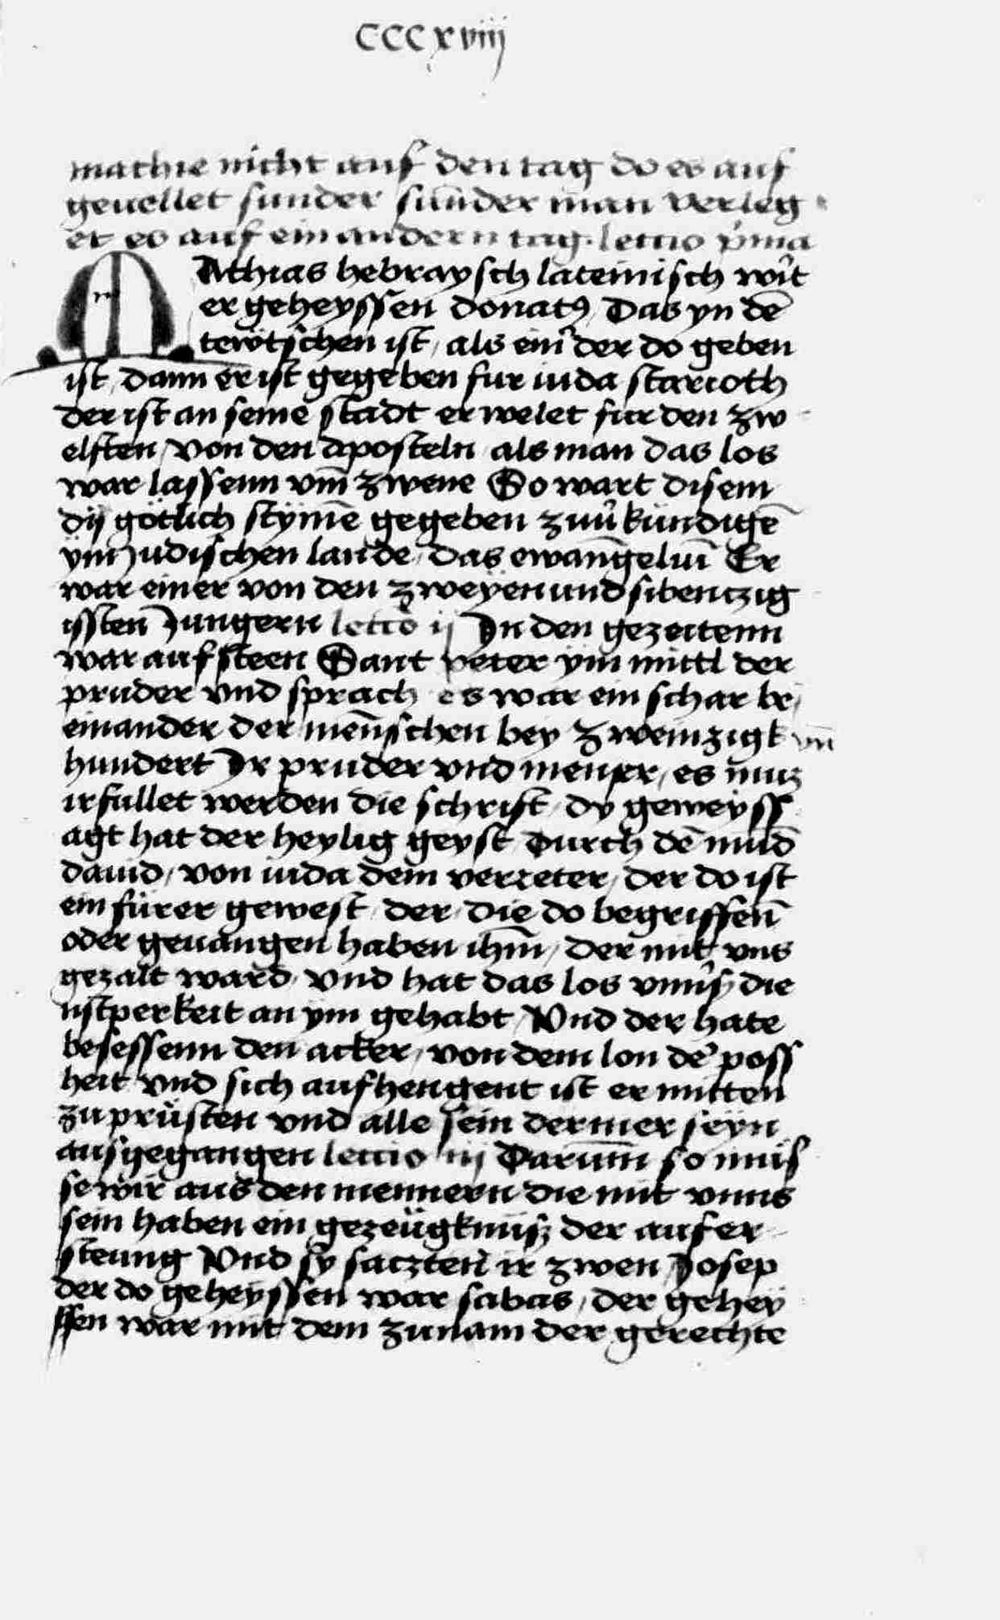 CCCxviij
mathie nicht auf den tag do es auf
geuellet sunder sunder man verleg
et es auf ein andern tag. lectio p̄ma
MAthias hebraysch lateinisch wirt
er geheyssen donatꝰ Das yn dē
tewtschen ist, als einꝰ der do geben
ist, dann er ist gegeben fur iuda scarioth
der ist an seine stadt erwelet fur den zw
elften, von den aposteln, als man das los
war lassenn vm̄ zwene So wart disem
dij gotlich stymē gegeben zuũkundigē
ym Judischen lande, das ewan̄geluī Er
war einer von den zweyen und sibenczig
issten Jungern lectō ij In den gezeitenn
war aufsteen Sant peter ym mittl der
pruder vnd sprach es war ein schar bej
einander der men̄schen bey zweinzigk vn̄
hundert Ir pruder vnd menner, es muz
irfullet werden die schrift, dy geweyss
agt hat der heylig geyst Durch dē mūd
dauid, von iuda dem verreter, der do ist
ein fürer gewest, der, die do begriffen̄
oder geuangen haben ihm̄, der mit vns
gezalt ward, vnd hat das los vnnß die
nstperkeit an ym gehabt, Vnd der hate
besessenn den acker, von dem lon dē poss
heit vnd sich aufhengent ist er mitten
zuprüsten vnd alle sein dermer seyn
ausgegangen lectio iij Darum̄ so mus
se wir aus den mennern die mit vnns
sein haben ein gezeügknuß der aufer
steung Vnd sy saczten ir zwen Josep
der do geheyssen war sabas, der gehey
ssen war mit dem zunam der gerechte